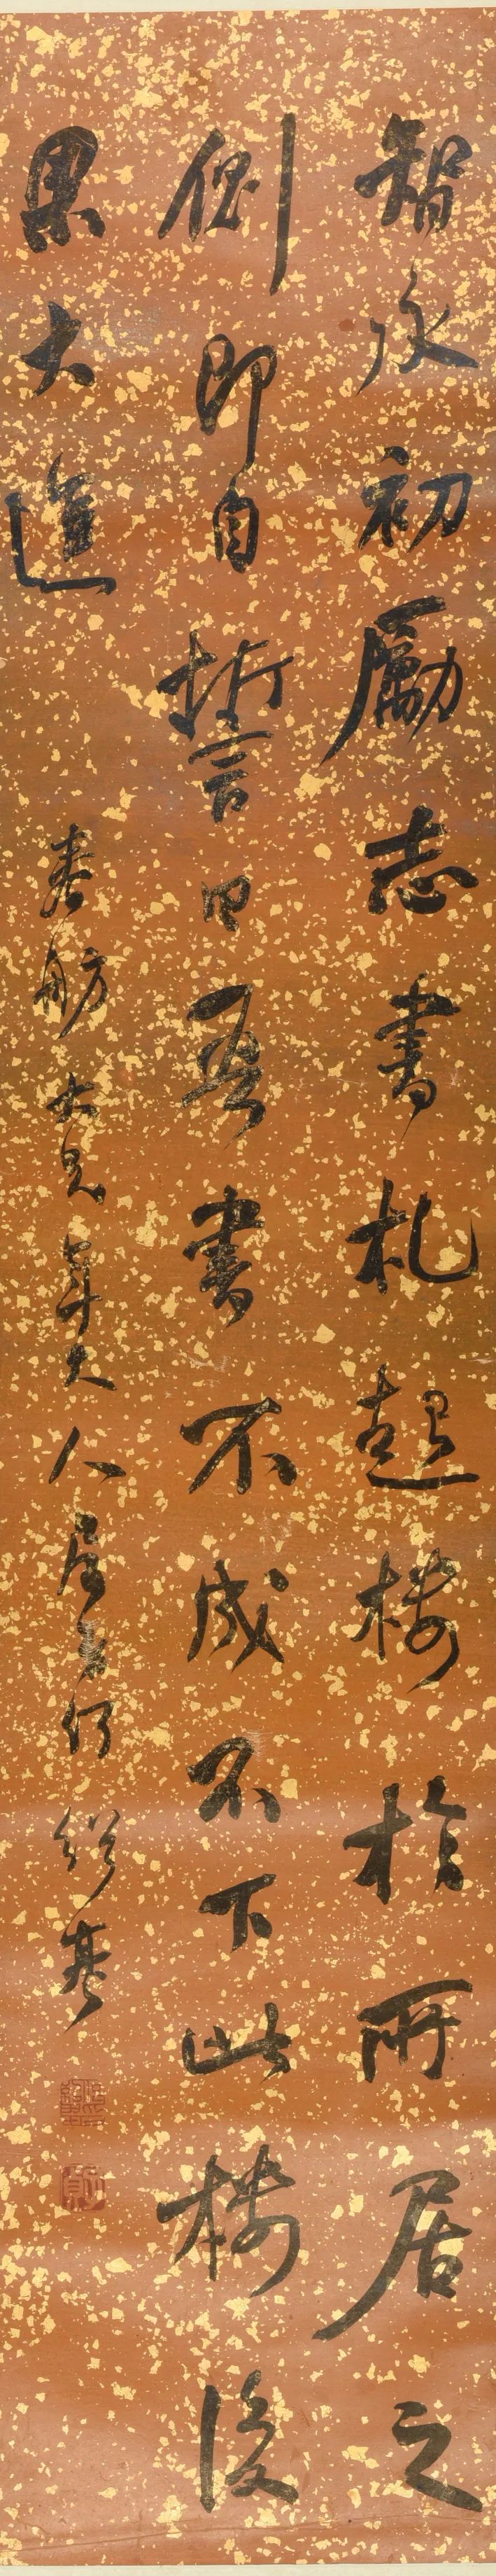 智永初勵志書札起樓於所居之
側即自誓曰吾書不成不下此樓後
果大進
春舫大兄年大人屬書何紹基